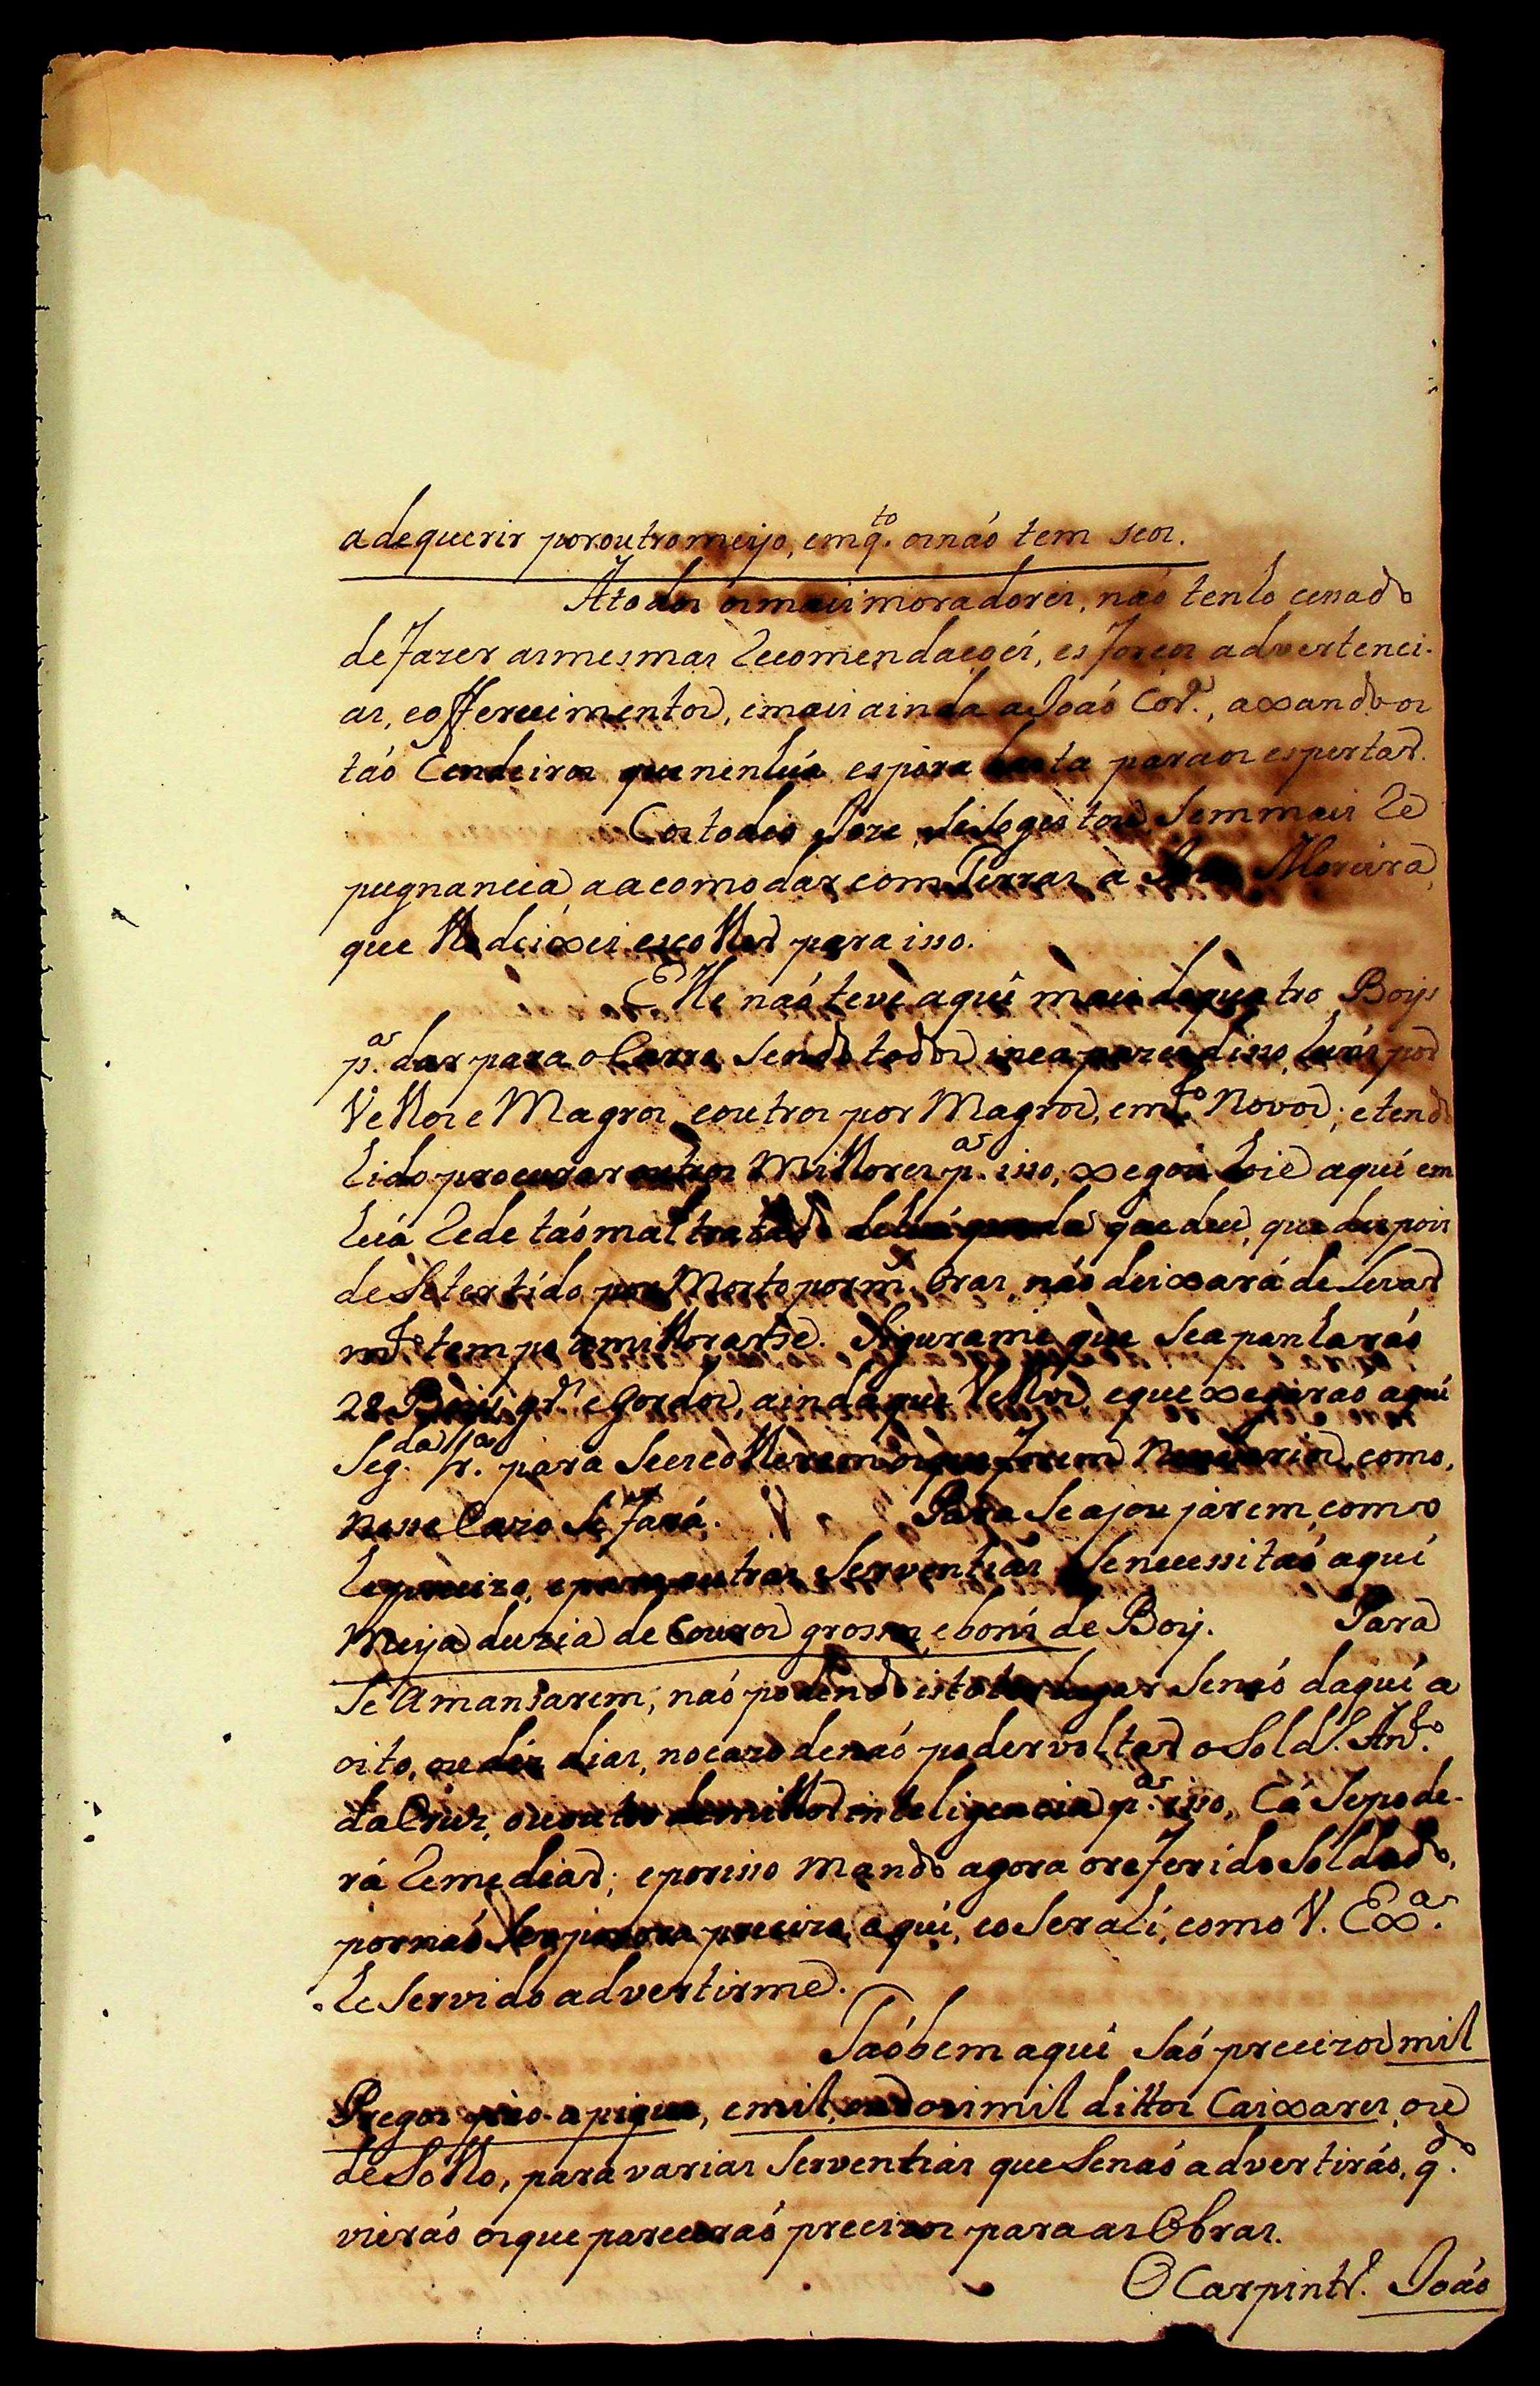 adequerir por outro meyo, emq.to os naó tem seos.
A todos os mais moradores, naó tenho cessado
de fazer as mesmas Recomendaçoẽs, esforços advertenci-
as, e offerecimentos, e mais ainda a Joaó Cord.o, axandoos
taó Rendeiros que nenhũa espora basta para os espertar.
Costodio Joze, se sogeitou sem mais Re
pugnancia, a acomodar com Terras à Moreira,
que lhe deixei escolher para isso.
Elle naó teve aqui mais de quatro Boys
p.a dar para o Carro sendo todos incapazes disso, huns por
Velhos e Magros, e outros por Magros, e m.to Novos; e tendo
hido procurar outros Milhores p.a isso, xegou hoie aqui em
hũa Rede taó maltratado de hũa queda que deu, que depois
de Se ter tido por Morto por m.s Oras, naó deixará de levar
m.to tempo a milhorarse. Figurame que Se apanharaó
28 Boys gr.des e Gordos, ainda que Velhos, e que xegaraó aqui
Seg.da fr.a para Se escolherem os que forem Necesarios, como,
nesse Cazo Se fará. Para Se ajoujarem, como
he precizo, e para outras Serventias Se necessitaó aqui
Meya duzia de Couros grossos, e bons de Boy. Para
Se Amansarem, naó podendo isto ter lugar Senaó daqui a
oito, ou dés dias, no cazo de naó poder voltar o Sold.o Ant.o
da Cruz, ou outro de milhor inteligencia p.a isso, Cá Se pode-
rá Remediar; e por isso Mando agora o referido Soldado,
por naó Ser por ora precizo aqui, e o Ser ali, como V. Ex.a
he Servido advertirme.
Taóbem aqui Saó precizos mil
Pregos a pique, e mil, ou dois mil dittos Caixares, ou
de Solho, para varias Serventias que Se naó advertiraó, q.do
vieraó os que pareceraó precizos para as Obras.
O Carpintr.o Joaó